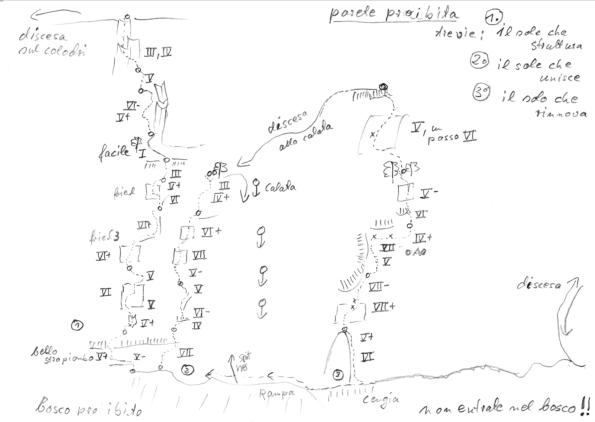 parete proibita
trevie:
1.
il sole che
struttura
2°
il sole che
unisce
3°
il sole che
rinnova
discesa
sul colodri
III, IV
V
VI-
V+
facile I
III
V+
VI
fried
VII+
fried 3
VI+
V
VI
V
V+
1
bello
strapiombo
V+
V-
III
IV+
VI+
VII
V-
V
VI-
IV
VII
2
discesa
alla calata
calata
V, un
passo VI
V-
VI
IV+
VII
V
VII-
VII+
V+
VI
3
discesa
Rampa
Cengia
Bosco proibito
non entrate nel bosco!!